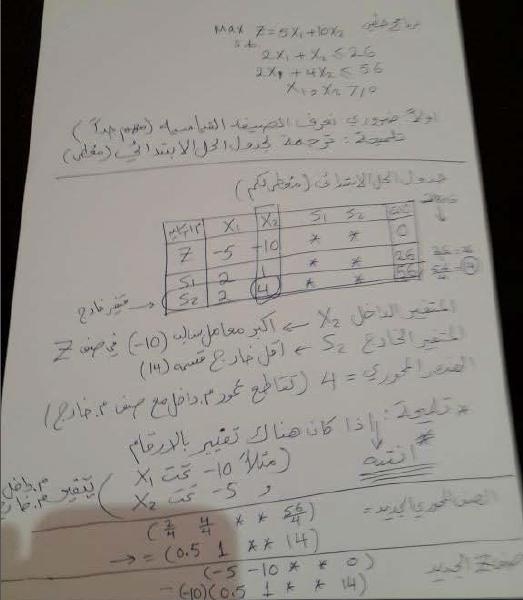 Max Z = 5X1 + 10X2
s.t.
2X1 + X2 ≤ 26
2X1 + 4X2 ≤ 56
X1, X2 ≥ 0
اولاً: ضروري نعرف الصيغة القياسية (مهم جداً)
تلميحة: ترجمة لجدول الحل الابتدائي (معطى)
جدول الحل الابتدائي (معطى لكم)
X1 X2 S1 S2
Z -5 -10 * * 0
S1 2 1 * * 26
S2 2 4 * * 56
متغير خارج
المتغير الداخل X2 ← أكبر معامل سالب (-10) في صف Z
المتغير الخارج S2 ← أقل خارج قسمة (14)
العنصر المحوري = 4 (تقاطع محور م.داخل مع صف م.خارج)
* تلميحة: إذا كان هناك تغيير بالارقام
* انتبه (مثلاً -10 تحت X1
و -5 تحت X2) يتغير م.داخل
الصف المحوري الجديد =
(2/4 4/4 * * 56/4)
→ = (0.5 1 * * 14)
صف Z الجديد (-5 -10 * * 0)
-(-10)(0.5 1 * * 14)